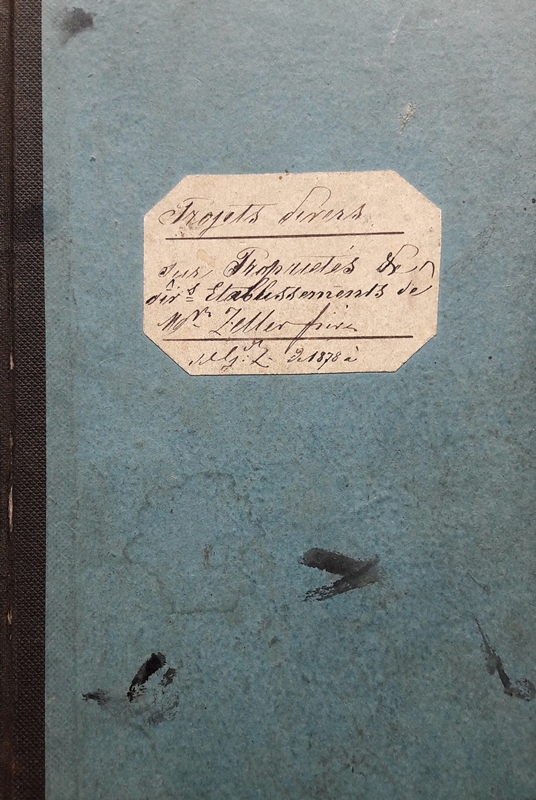 Projets divers
sur Propriétés &
divrs Etablissements de
Mrs Zeller frères
de 1878 à